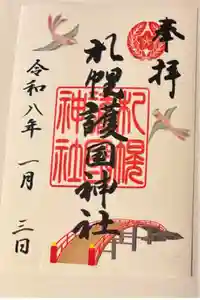 奉拝
札幌護国神社
札幌護国神社
令和八年 一月 三日